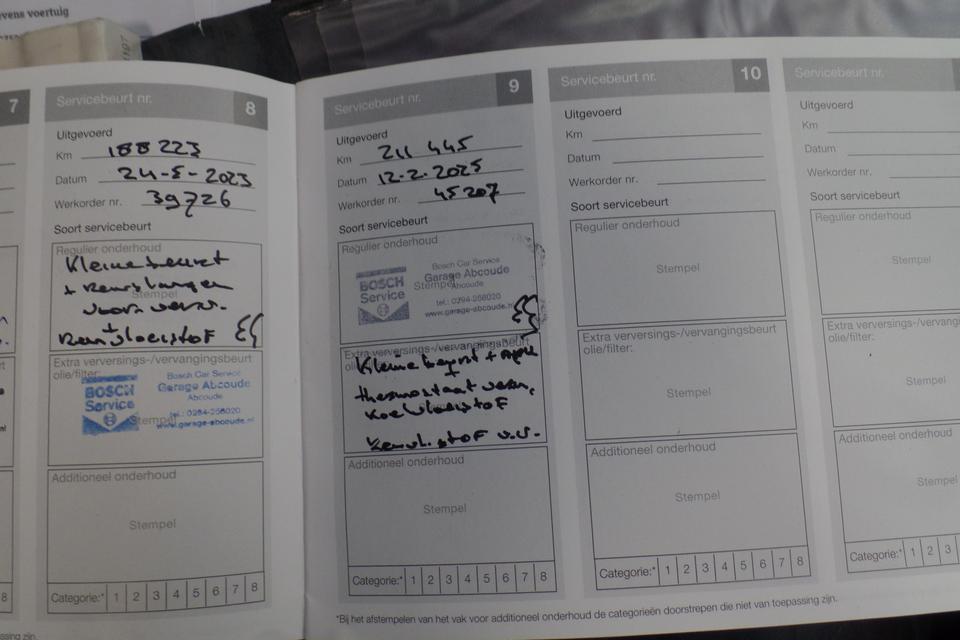 evens voertuig
7
Servicebeurt nr. 8
Uitgevoerd
Km 188 223
Datum 24-5-2023
Werkorder nr. 39726
Soort servicebeurt
Regulier onderhoud
Kleine beurt
Stempel
+ remslangen
voor verv.
+
Remvloeistof
Extra verversings-/vervangingsbeurt
olie/filter:
BOSCH
Service
Bosch Car Service
Garage Abcoude
Abcoude
Stempel
tel.: 0294-256020
www.garage-abcoude.nl
Additioneel onderhoud
Stempel
Categorie:* 1 2 3 4 5 6 7 8
Servicebeurt nr. 9
Uitgevoerd
Km 211 445
Datum 12-2-2025
Werkorder nr. 45207
Soort servicebeurt
Regulier onderhoud
BOSCH
Service
Bosch Car Service
Garage Abcoude
Stempel
Abcoude
tel.: 0294-256020
www.garage-abcoude.nl
Extra verversings-/vervangingsbeurt
Kleine beurt +
+
thermostaat verv.
koelvloeistof
Additioneel onderhoud
Stempel
Categorie:* 1 2 3 4 5 6 7 8
Servicebeurt nr. 10
Uitgevoerd
Km
Datum
Werkorder nr.
Soort servicebeurt
Regulier onderhoud
Stempel
Extra verversings-/vervangingsbeurt
olie/filter:
Stempel
Additioneel onderhoud
Stempel
Categorie:* 1 2 3 4 5 6 7 8
Servicebeurt nr.
Uitgevoerd
Km
Datum
Werkorder nr.
Soort servicebeurt
Regulier onderhoud
Stempel
Extra verversings-/vervangings
olie/filter:
Stempel
Additioneel onderhoud
Stempel
Categorie:* 1 2 3
*Bij het afstempelen van het vak voor additioneel onderhoud de categorieën doorstrepen die niet van toepassing zijn.